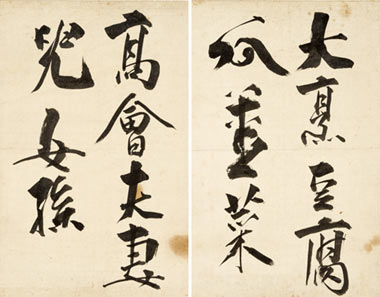 大烹豆腐
瓜薑菜
高會夫妻
兒女孫